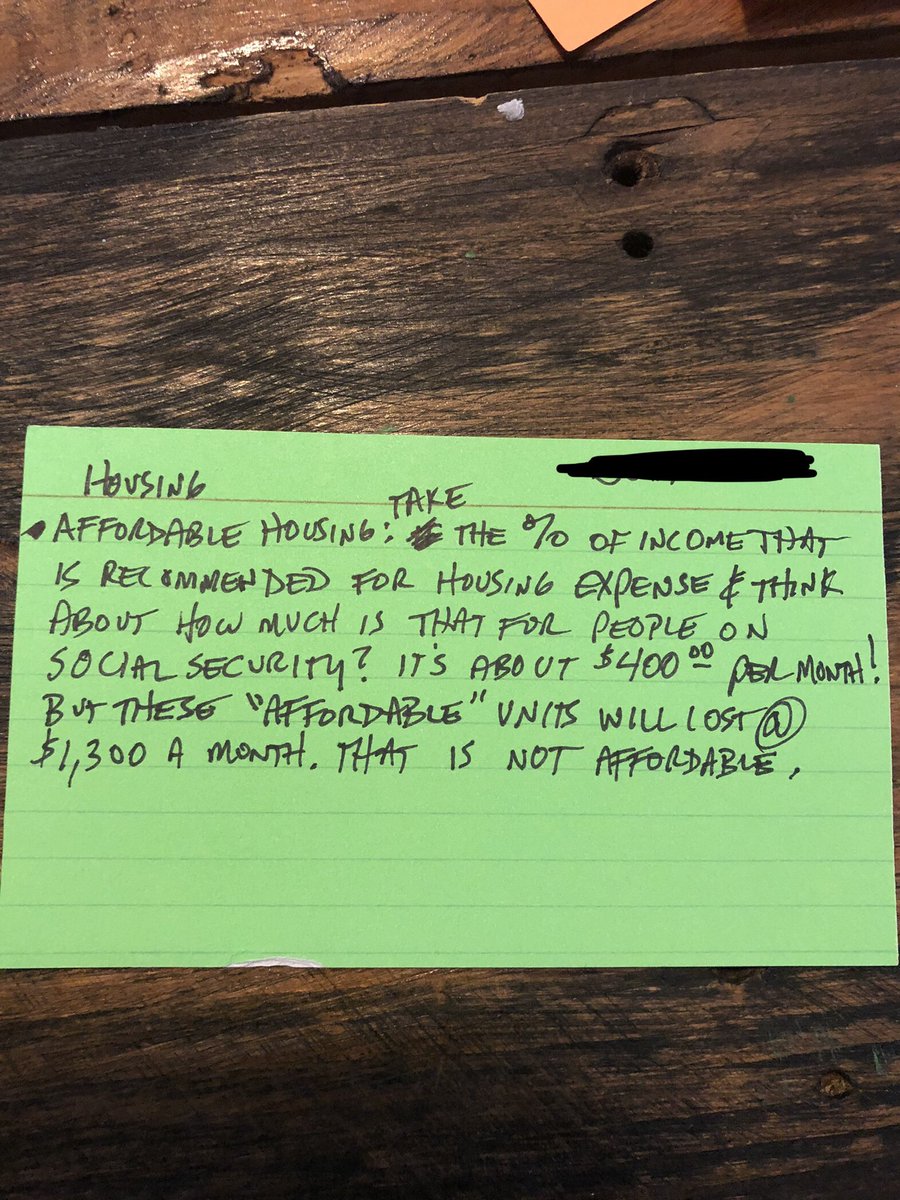 HOUSING
TAKE
AFFORDABLE HOUSING: THE % OF INCOME THAT
IS RECOMMENDED FOR HOUSING EXPENSE & THINK
ABOUT HOW MUCH IS THAT FOR PEOPLE ON
SOCIAL SECURITY? IT'S ABOUT $400.00 PER MONTH!
BUT THESE "AFFORDABLE" UNITS WILL COST @
$1,300 A MONTH. THAT IS NOT AFFORDABLE.